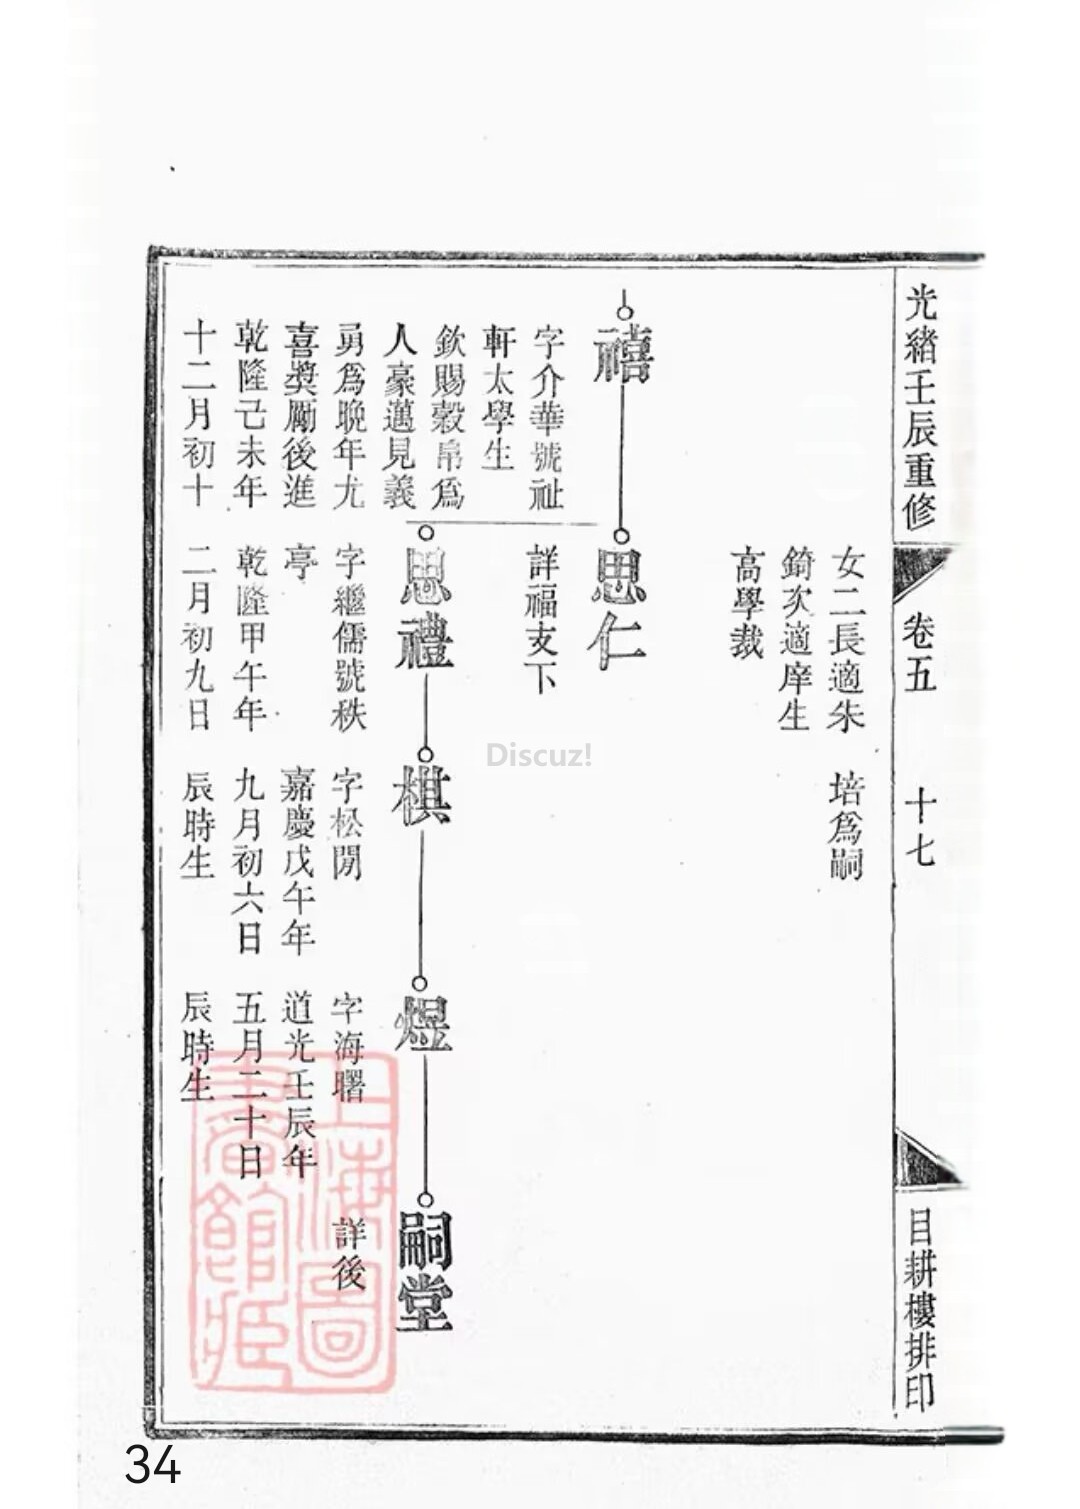 光緒壬辰重修
卷五
十七
目耕樓排印
女二長適朱
錡次適庠生
高學裁
培爲嗣
禧
字介華號祉
軒太學生
欽賜穀帛爲
人豪邁見義
勇爲晚年尤
喜奬勵後進
乾隆己未年
十二月初十
思仁
詳福支下
思禮
字繼儒號秩
亭
乾隆甲午年
二月初九日
棋
字松閒
嘉慶戊午年
九月初六日
辰時生
煜
字海曙
道光壬辰年
五月二十日
辰時生
嗣堂
詳後
上海圖
書館藏
Discuz!
34